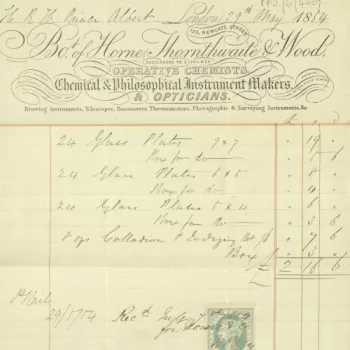 H R H Prince Albert London 29th May 1854
123, NEWGATE STREET
Bot. of Horne, Thornthwaite & Wood,
SUCCESSORS TO E. PALMER
OPERATIVE CHEMISTS
Chemical & Philosophical Instrument Makers,
& OPTICIANS.
Drawing Instruments, Telescopes, Barometers, Thermometers, Photographic & Surveying Instruments, &c.
24 Glass Plates 9 x 7 " 19 "
Box for do " 6
24 Glass Plates 6 x 5 " 8 "
Box for do " 4 "
24 Glass Plates 5 x 4 " 6
Box for do " 3 6
8 ozs Collodion & Iodizing 7 6
Box " 3
£ 2 16 6
Pr Rail
29/5/54 Recd
for Horne & Co